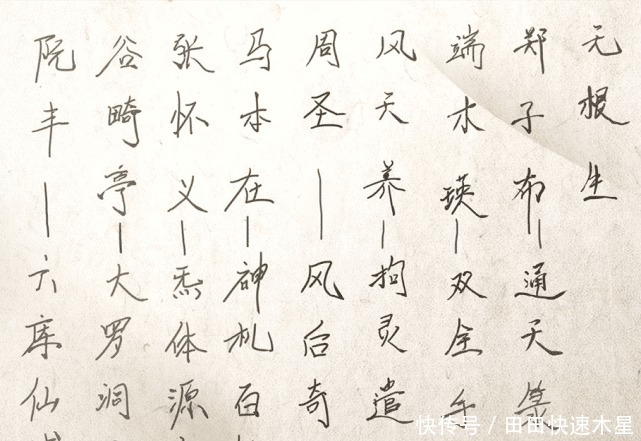 无根生
郑子布—通天箓
端木瑛—双全手
风天养—拘灵遣
周圣—风后奇
马本在—神机百
张怀义—炁体源
谷畸亭—大罗洞
阮丰—六库仙
快传号 / 田田快速木星